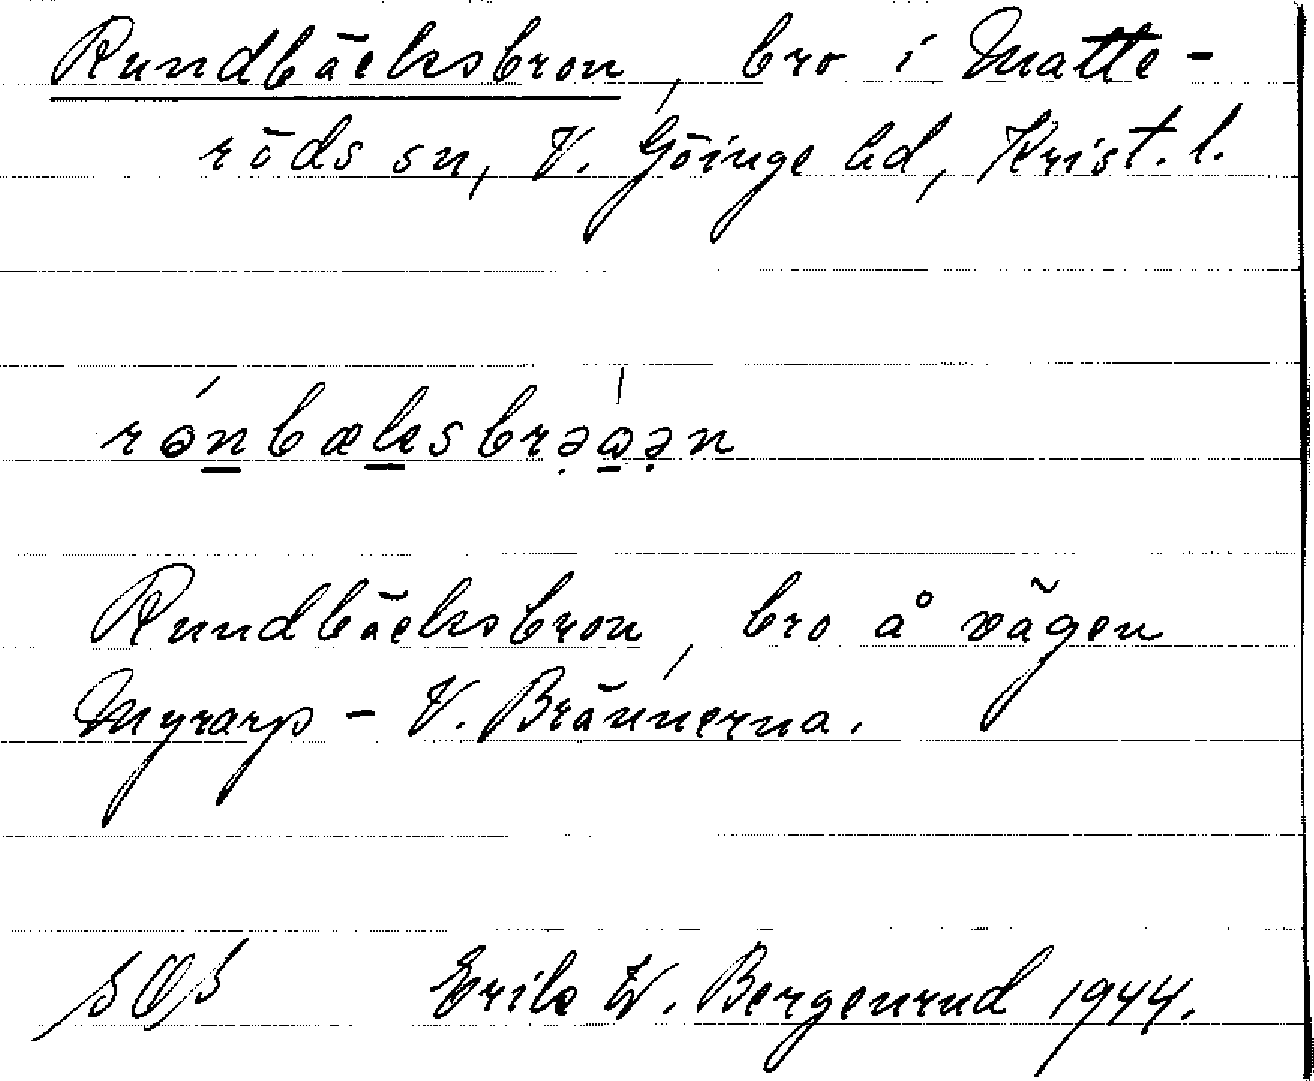 Rundbäcksbron, bro i Matte-
röds sn, V. Göinge hd, Krist. l.
rə́n̲bæk̲sbrə̣a̲̍ə̣n
Rundbäcksbron, bro å vägen
Myrarp – V. Brännerna.
Erik W. Bergenrud 1944.